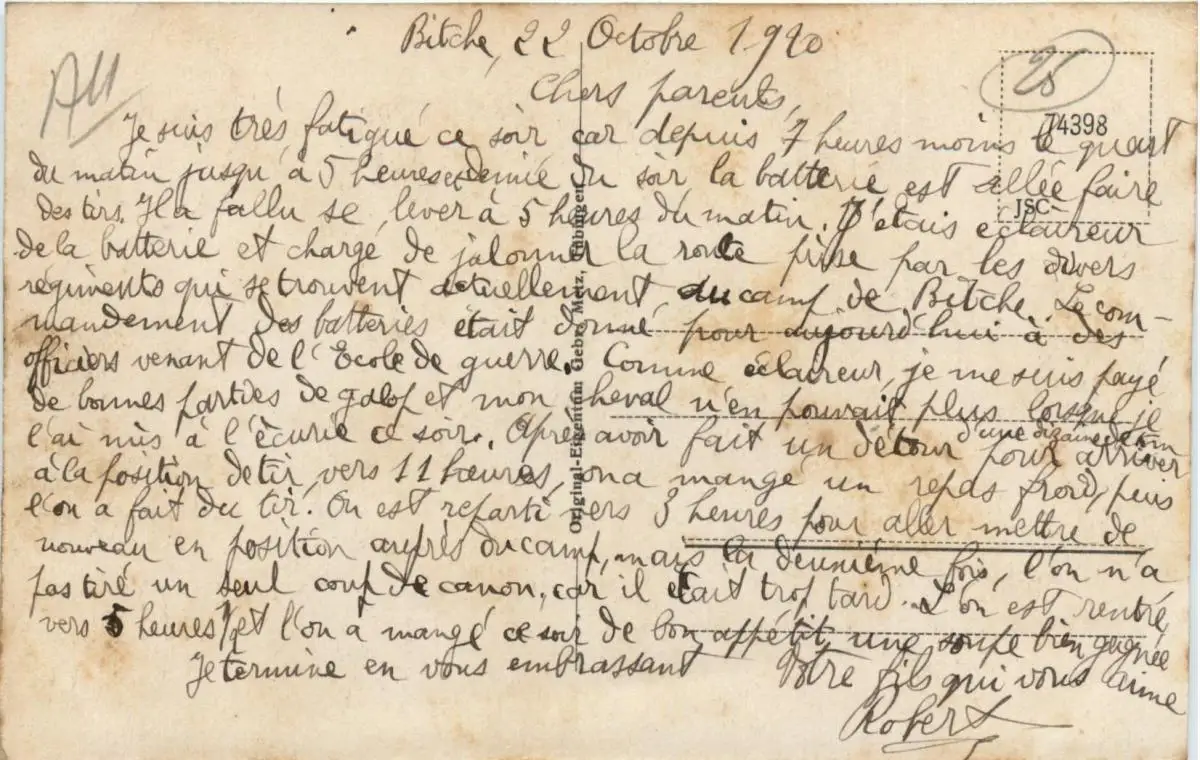 Bitche, 22 Octobre 1920
Chers parents,
Je suis très fatigué ce soir car depuis 7 heures moins le quart
du matin jusqu'à 5 heures et demie du soir, la batterie est allée faire
des tirs. Il a fallu se lever à 5 heures du matin. J'étais éclaireur
de la batterie et chargé de jalonner la route prise par les divers
régiments qui se trouvent actuellement au camp de Bitche. Le com-
mandement des batteries était donné pour aujourd'hui à des
officiers venant de l'Ecole de guerre. Comme éclaireur, je me suis payé
de bonnes parties de galop et mon cheval n'en pouvait plus lorsque je
l'ai mis à l'écurie ce soir. Après avoir fait un détour d'une dizaine de km pour arriver
à la position de tir vers 11 heures, on a mangé un repas froid, puis
l'on a fait du tir. On est reparti vers 3 heures pour aller mettre de
nouveau en position auprès du camp, mais la deuxième fois, l'on n'a
pas tiré un seul coup de canon, car il était trop tard. L'on est rentré
vers 5 heures 1/2 et l'on a mangé ce soir de bon appétit, une soupe bien gagnée
Je termine en vous embrassant
Votre fils qui vous aime
Robert
25
74398
JSC
Original-Eigentum Gebr. Metz, Tübingen